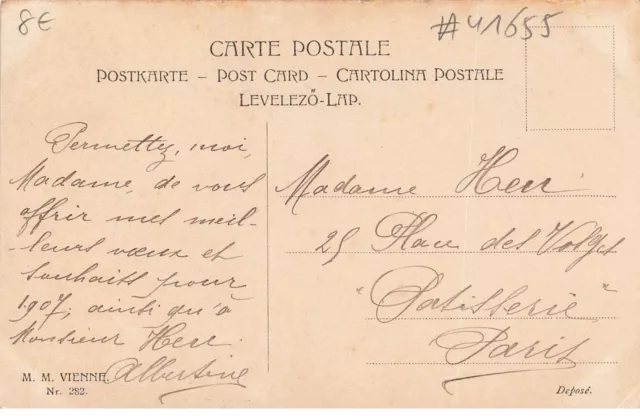 8€
#41655
CARTE POSTALE
POSTKARTE – POST CARD – CARTOLINA POSTALE
LEVELEZŐ-LAP.
Permettez, moi,
Madame, de vous
offrir mes meil-
-leurs vœux et
souhaits pour
1907, ainsi qu'à
Monsieur Herr.
Albertine
Madame Herr
25 Place des Vosges
"Patisserie"
Paris
M. M. VIENNE.
Nr. 282.
Deposé.